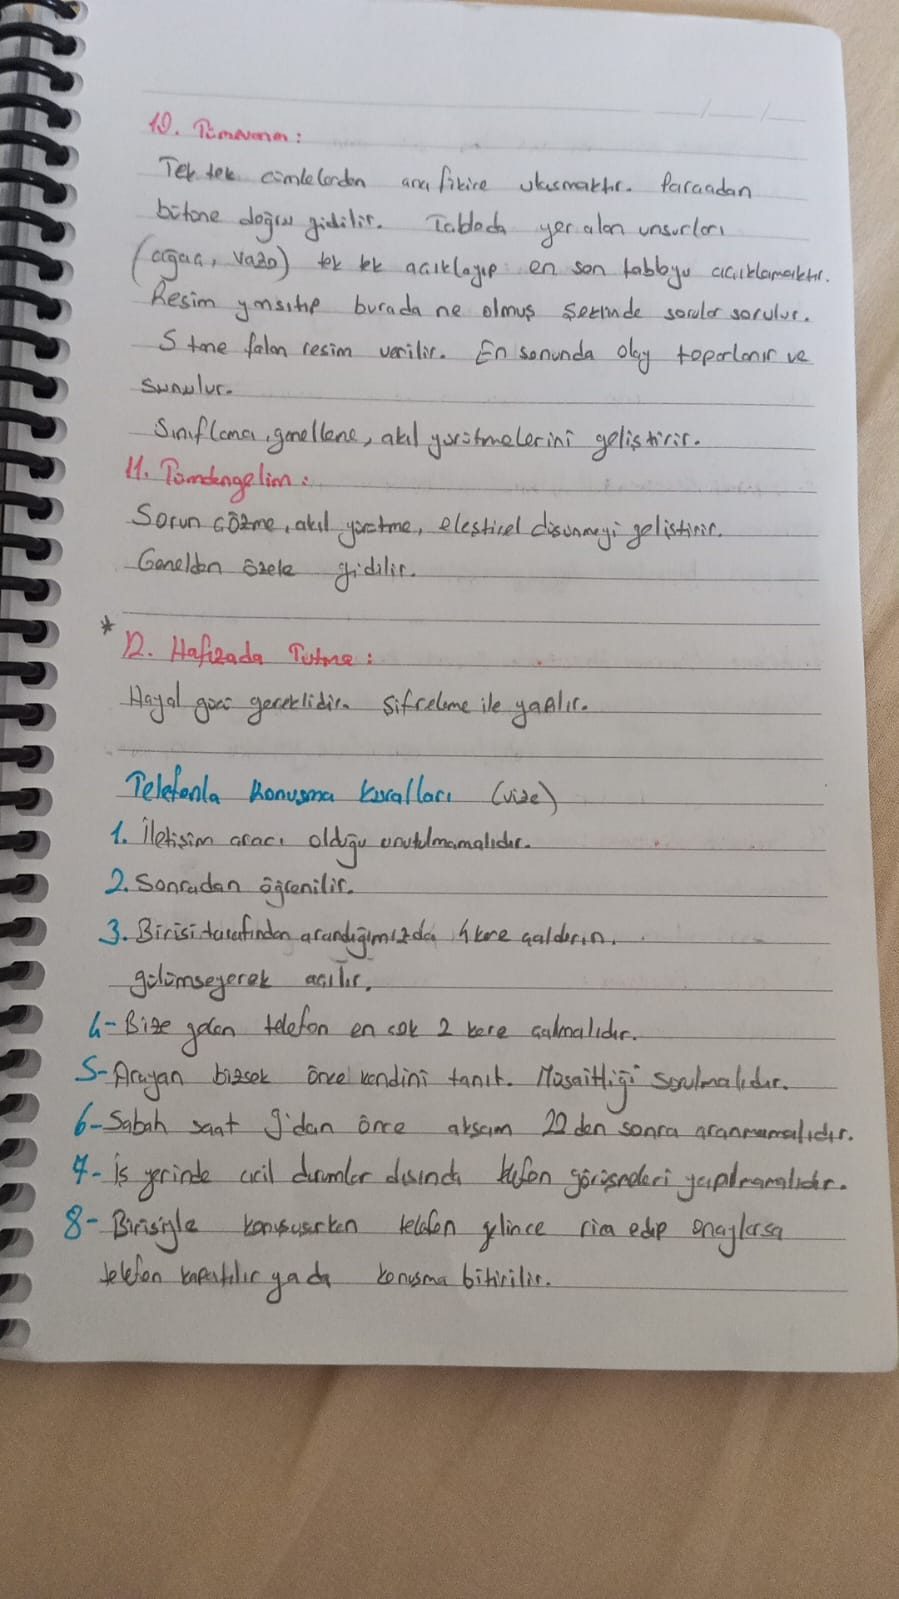 10. Tümevarım:
Tek tek cümlelerden ana fikire ulaşmaktır. Parçadan
bütüne doğru gidilir. Tabloda yer alan unsurları
(ağaç, vazo) tek tek açıklayıp en son tabloyu açıklamaktır.
Resim yansıtıp burada ne olmuş şeklinde sorular sorulur.
5 tane falan resim verilir. En sonunda olay toparlanır ve
sunulur.
Sınıflama, genelleme, akıl yürütmelerini geliştirir.
11. Tümdengelim:
Sorun çözme, akıl yürütme, eleştirel düşünmeyi geliştirir.
Genelden özele gidilir.
* 12. Hafızada Tutma:
Hayal gücü gereklidir. Şifreleme ile yapılır.
Telefonla Konuşma Kuralları (vize)
1. İletişim aracı olduğu unutulmamalıdır.
2. Sonradan öğrenilir.
3. Birisi tarafından arandığımızda 4 kere çaldırın.
gülümseyerek açılır.
4- Bize gelen telefon en çok 2 kere çalmalıdır.
5- Arayan bizsek önce kendini tanıt. Müsaitliği sorulmalıdır.
6- Sabah saat 9'dan önce akşam 22 den sonra aranmamalıdır.
7- İş yerinde acil durumlar dışında telefon görüşmeleri yapılmamalıdır.
8- Birisiyle konuşurken telefon gelince rica edip onaylarsa
telefon kapatılır ya da konuşma bitirilir.